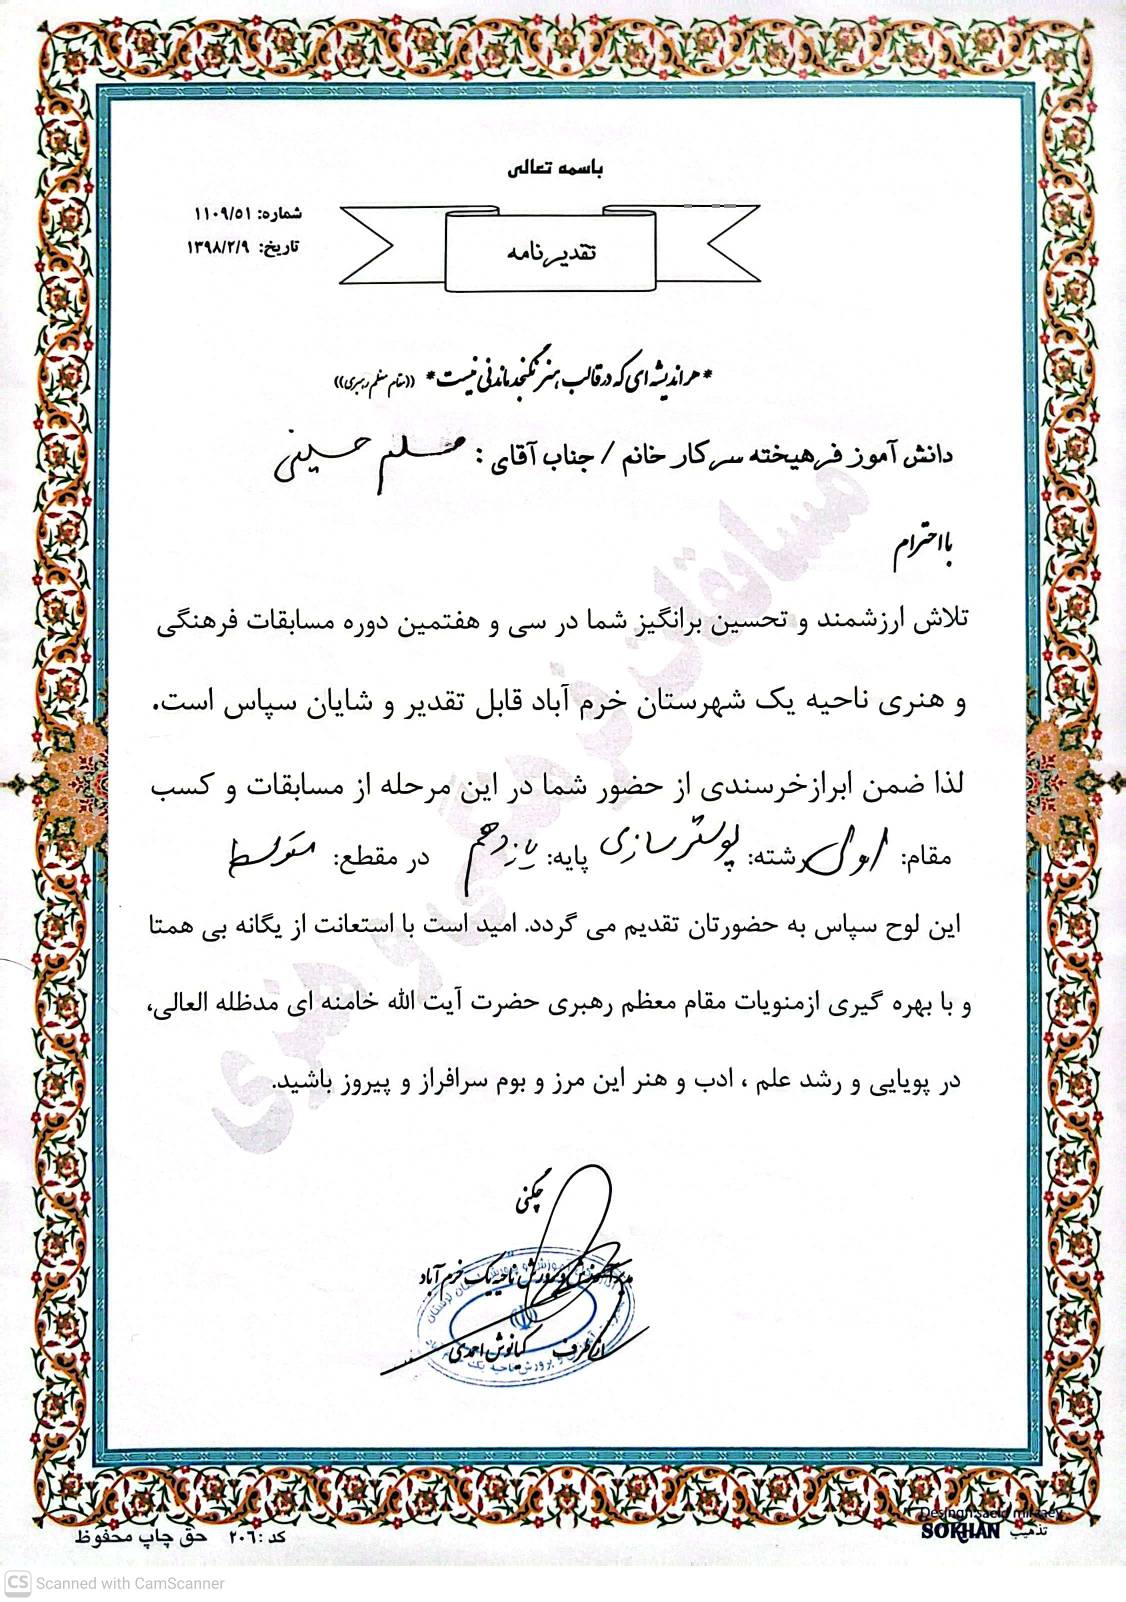 باسمه تعالی
شماره: ۱۱۰۹/۵۱
تاریخ: ۱۳۹۸/۲/۹
تقدیرنامه
*هر اندیشه ای که در قالب هنر نگنجد ماندنی نیست* ((مقام معظم رهبری))
دانش آموز فرهیخته سرکار خانم / جناب آقای : مسلم حسینی
با احترام
تلاش ارزشمند و تحسین برانگیز شما در سی و هفتمین دوره مسابقات فرهنگی
و هنری ناحیه یک شهرستان خرم آباد قابل تقدیر و شایان سپاس است.
لذا ضمن ابرازخرسندی از حضور شما در این مرحله از مسابقات و کسب
مقام: اول رشته: پوسترسازی پایه: یازدهم در مقطع: متوسط
این لوح سپاس به حضورتان تقدیم می گردد. امید است با استعانت از یگانه بی همتا
و با بهره گیری ازمنویات مقام معظم رهبری حضرت آیت الله خامنه ای مدظله العالی،
در پویایی و رشد علم ، ادب و هنر این مرز و بوم سرافراز و پیروز باشید.
مسابقات فرهنگی و هنری
چگنی
مدیر آموزش و پرورش ناحیه یک خرم آباد
از طرف کیانوش احمدی
Desingn:saeid mirzaey
تذهیب SOKHAN
کد :۲۰۶ حق چاپ محفوظ
CS Scanned with CamScanner